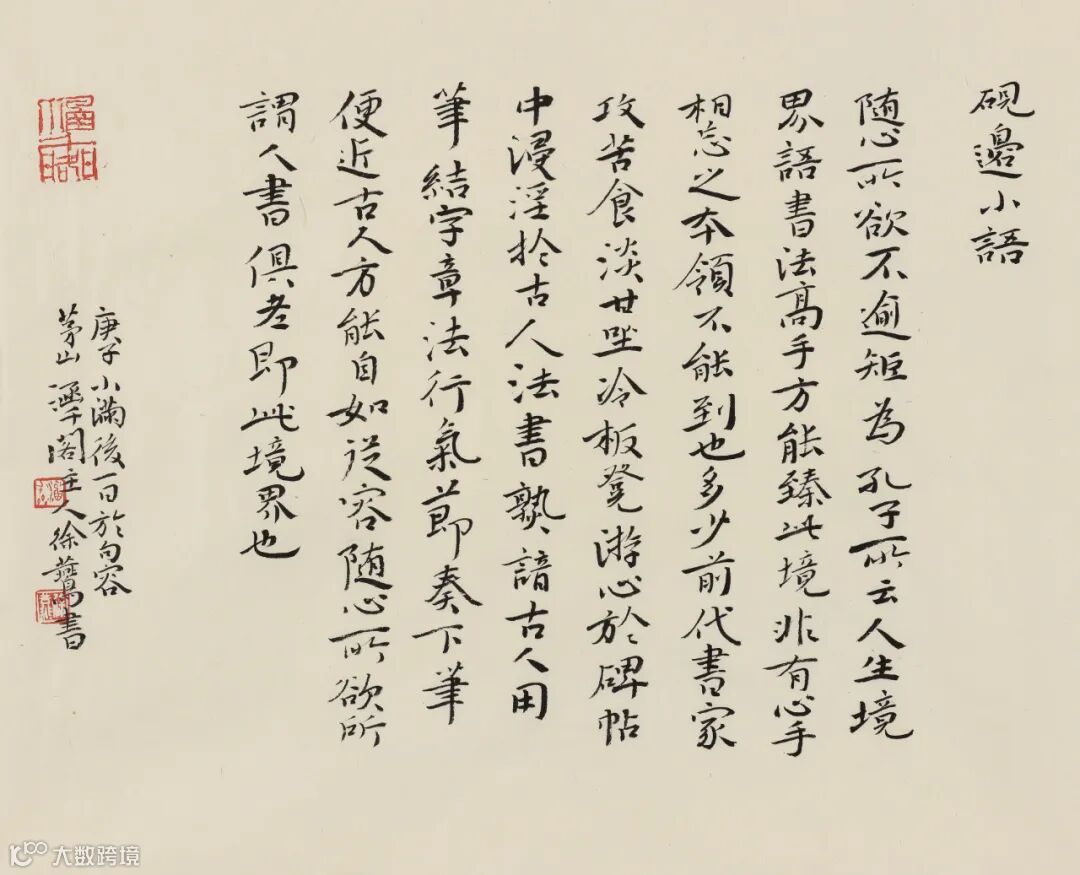 硯邊小語
随心所欲不逾矩為孔子所云人生境
界語書法高手方能臻此境非有心手
相忘之本領不能到也多少前代書家
攻苦食淡甘坐冷板凳游心於碑帖
中浸淫於古人法書熟諳古人用
筆結字章法行氣節奏下筆
便近古人方能自如從容随心所欲所
謂人書俱老即此境界也
庚子小滿後一日於句容
茅山涵千閣主人徐鶯書
大数跨境